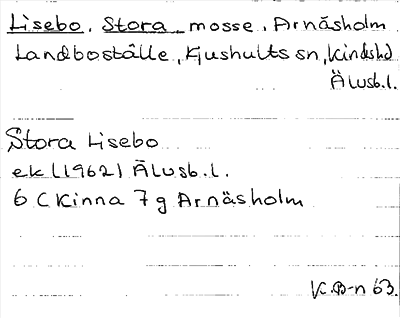 Lisebo, Stora mosse, Arnäsholm
Landboställe, Kjushults sn, Kinds hd
Älvsb. l.
Stora Lisebo
ek (1962) Älvsb. l.
6 C Kinna 7 g Arnäsholm
K.B-n 63.